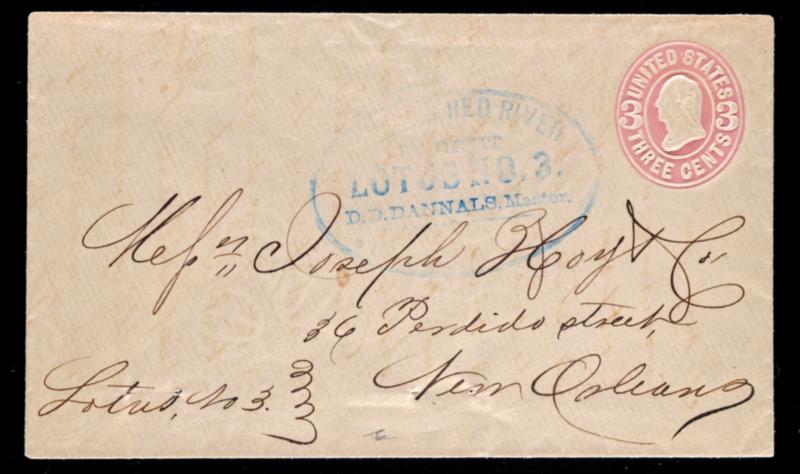 UNITED STATES
3 3
THREE CENTS
RED RIVER
PACKET
LOTUS NO. 3.
D. D. DANNALS, Master.
Messrs Joseph Hoy & Co
36 Perdido street,
New Orleans
Lotus, No 3.